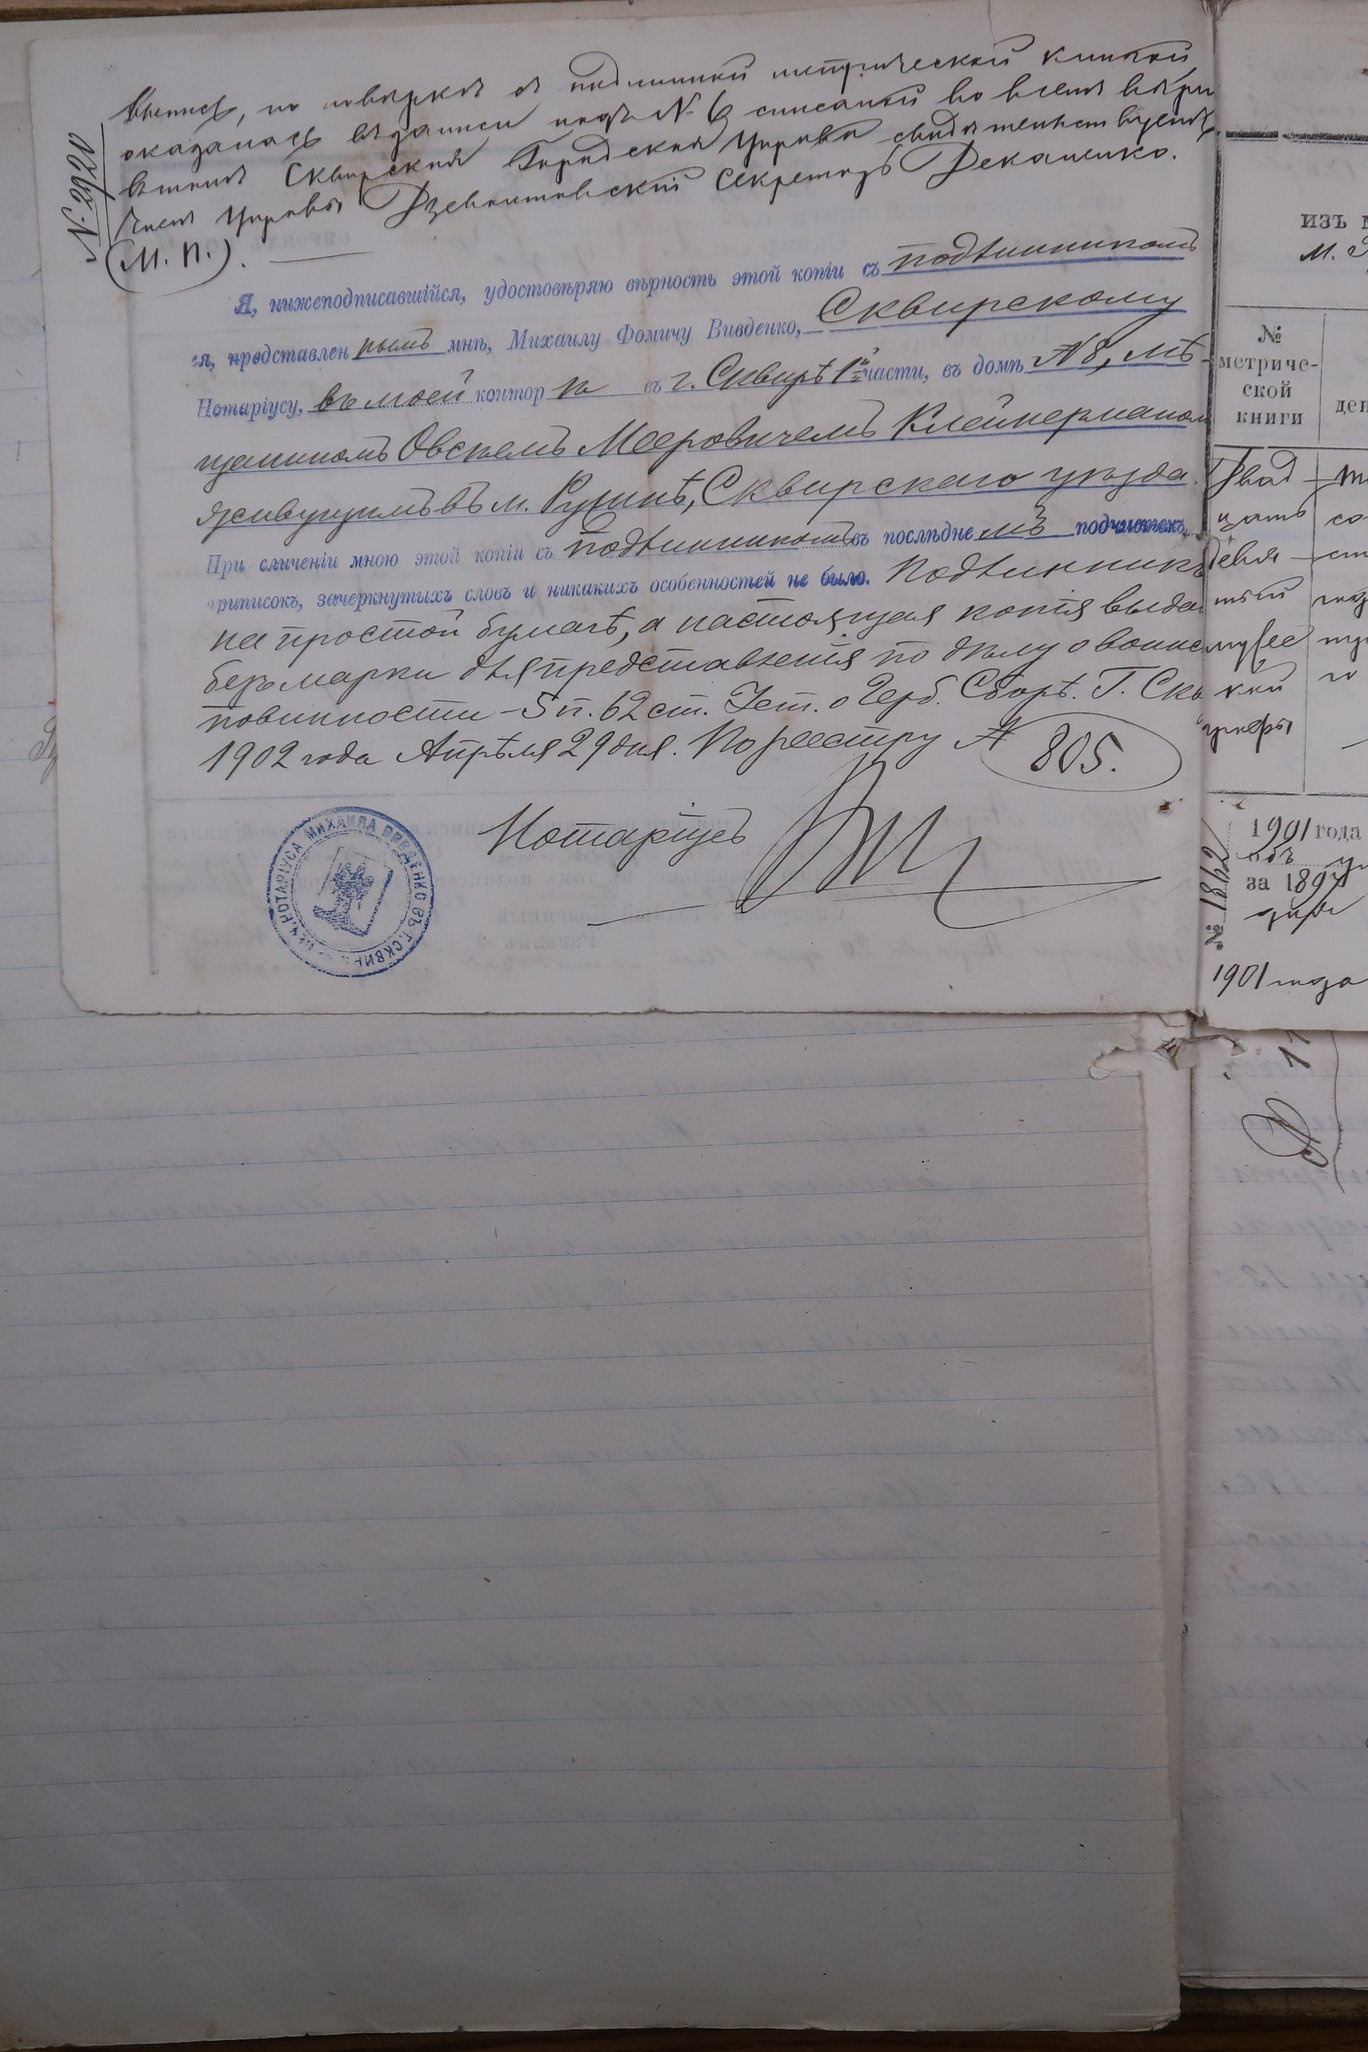 № 2920
Выпись, по поверке с подлинной метрической книгой
оказалась въ записи подъ № 6 списаной во всемъ вѣрн
въ томъ Сквирская Городская Управа свидѣтельствуетъ.
Членъ Управы Секретарь
(М. П.).
Я, нижеподписавшійся, удостовѣряю вѣрность этой копіи съ подлинникомъ
ея, представленнымъ мнѣ, Михаилу Фомичу Вивденко, Сквирскому
Нотаріусу, въ моей конторѣ въ г. Сквирѣ 1й части, въ домѣ № 8, мѣ-
щаниномъ Овсѣемъ Мееровичемъ Клейнерманом
живущимъ въ м. Ружинѣ, Сквирскаго уѣзда.
При сличеніи мною этой копіи съ подлинникомъ въ послѣднемъ подчистокъ,
приписокъ, зачеркнутыхъ словъ и никакихъ особенностей не было. Подлинникъ
на простой бумагѣ, а настоящая копія выда
безъ марки для представленія по дѣлу о воинс
повинности - 5 п. 62 ст. Уст. о Герб. Сборѣ. Г. Скв
1902 года Апрѣля 29 дня. По реестру № 805.
Нотаріусъ
НОТАРІУСА МИХАИЛА ВИВДЕНКО ВЪ Г. СКВИРѢ
изъ м
м.
№
метриче-
ской
книги
ден
Двад
цать
девя
тый
муже
ской
1901 года
за 1897
№ 1862
1901 года